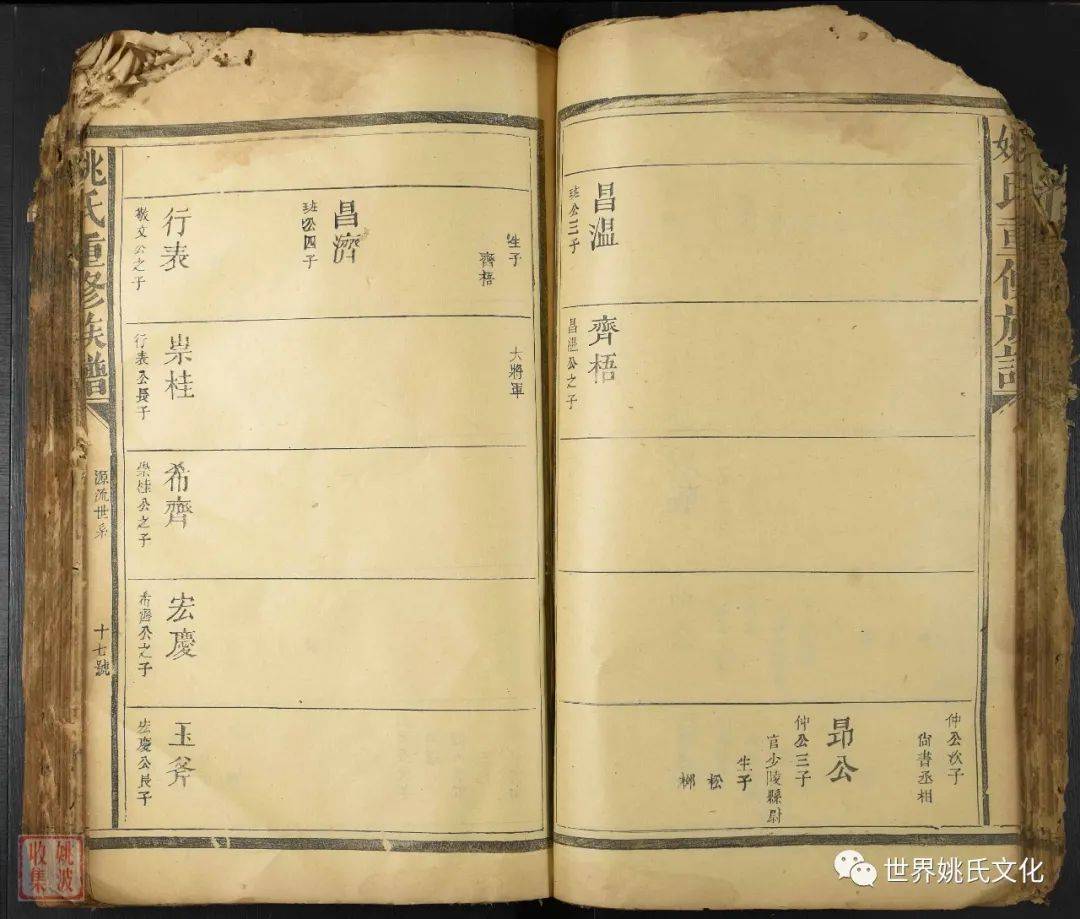 姚氏重修族譜
昌温
班公三子
齊梧
昌温公之子
仲公次子
尙書丞相
昂公
仲公三子
官少陵縣尉
生子
松
柳
生子
齊梧
大將軍
昌濟
班公四子
行表
敬文公之子
崇桂
行表公長子
希齊
崇桂公之子
宏慶
希齊公之子
玉斧
宏慶公長子
姚氏重修族譜
源流世系
十七號
姚波
收集
世界姚氏文化